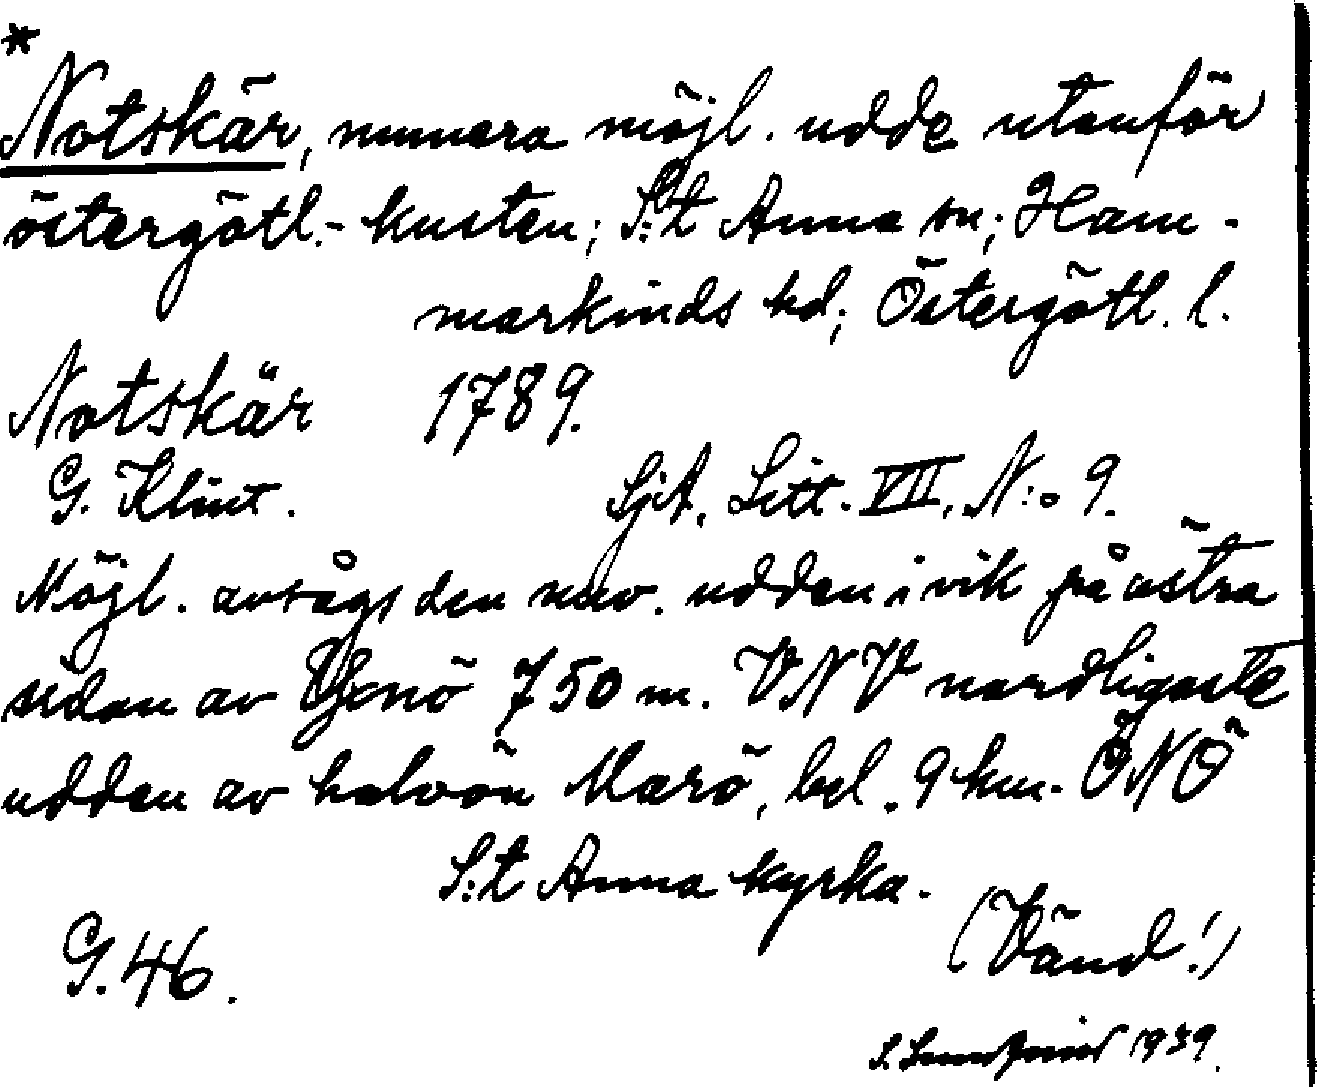 *
Notskär, numera möjl. udde utanför
östergötl.- kusten; S:t Anna sn; Ham-
markinds hd; Östergötl. l.
Notskär 1789.
G. Klint. SjA. Litt. VII, N:o 9.
Möjl. avsågs den nuv. udden i vik på östra
sidan av 750 m. VNV nordligaste
udden av halvön Marö, bel. 9 km. ÖNÖ
S:t Anna kyrka.
G. 46. (Vänd!)
1939.